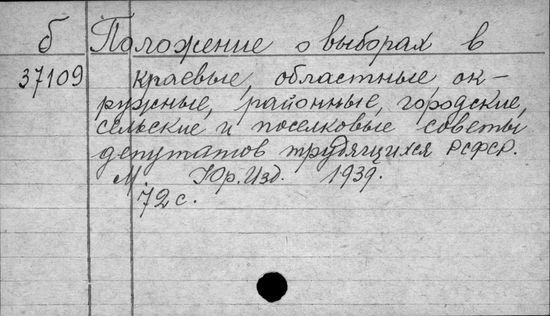 б Положение о выборах в
37109 краевые, областные, ок-
ружные, районные, городские,
сельские и поселковые советы
депутатов трудящихся РСФСР.
М. Юр.Изд. 1939.
72 с.